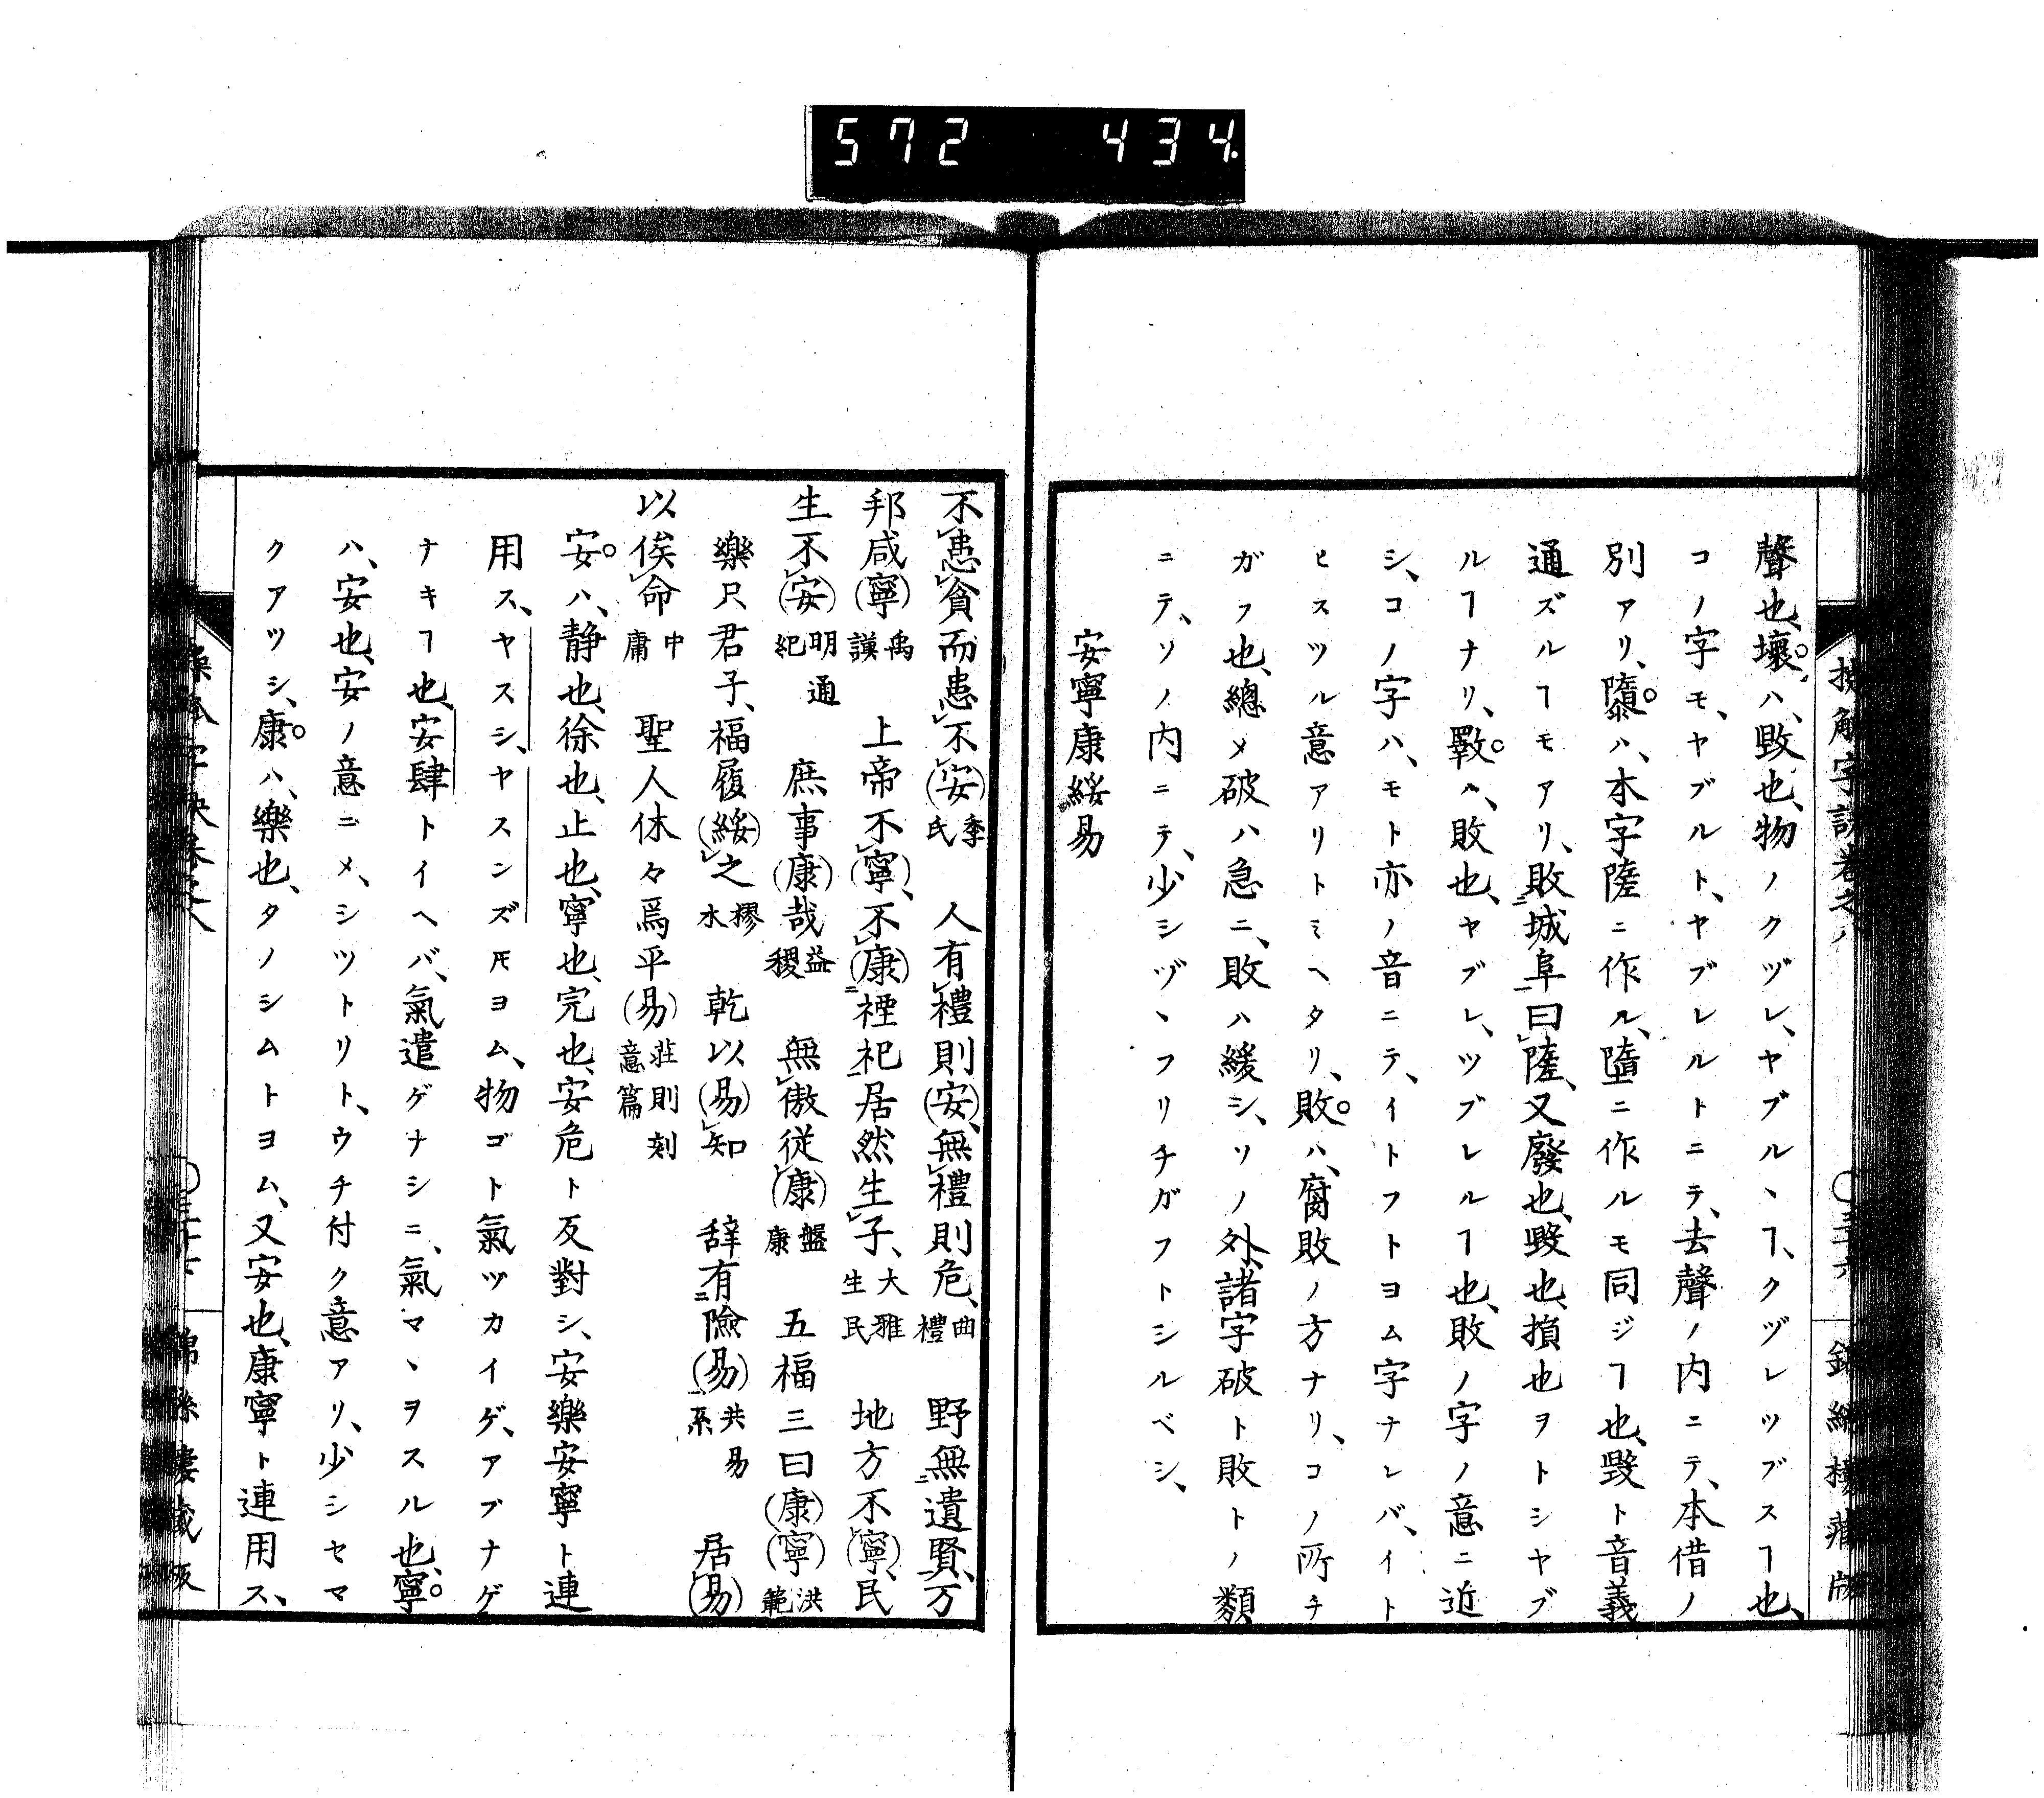 572 434.
聲也、壞ハ、毀也、物ノクヅレ、ヤブルヽヿ、クヅレツブスヿ也、
コノ字モ、ヤブルト、ヤブレルトニテ、去聲ノ内ニテ、本借ノ
別アリ、隳ハ、本字陸ニ作ル、墮ニ作ルモ同ジヿ也、毀ト音義
通ズルヿモアリ、敗城阜曰陸、又廢也、毀也、損也ヲトシヤブ
ルヿナリ、斁ハ、敗也、ヤブレ、ツブレルヿ也、敗ノ字ノ意ニ近
シ、コノ字ハ、モト亦ノ音ニテ、イトフトヨム字ナレバ、イト
ヒスツル意アリトミヘタリ、敗ハ、腐敗ノ方ナリ、コノ所チ
ガフ也、總メ破ハ急ニ、敗ハ緩シ、ソノ外諸字破ト敗トノ類
ニテ、ソノ内ニテ、少シヅヽフリチガフトシルベシ、
安寧康綏易
不患貧而患不(安)季氏 人有禮則(安)、無禮則危、曲禮 野無遺賢、万
邦咸(寧)禹謨 上帝不(寧)、不(康)禋祀居然生子、大雅生民 地方不(寧)、民
生不(安)明通紀 庶事(康)哉益稷 無傲従(康)盤康 五福三曰(康)(寧)洪範
樂只君子、福履(綏)之樛木 乾以(易)知 辞有險(易)共易系 居(易)
以俟命中庸 聖人休々爲平(易)荘則刻意篇
安ハ、静也、徐也、止也、寧也、完也、安危ト反對シ、安樂安寧ト連
用ス、ヤスシ、ヤスンズモヨム、物ゴト氣ツカイゲ、アブナゲ
ナキヿ也、安肆トイヘバ、氣遣ゲナシニ、氣マヽヲスル也、寧
ハ、安也、安ノ意ニメ、シツトリト、ウチ付ク意アリ、少シセマ
クアツシ、康ハ、樂也、タノシムトヨム、又安也、康寧ト連用ス、